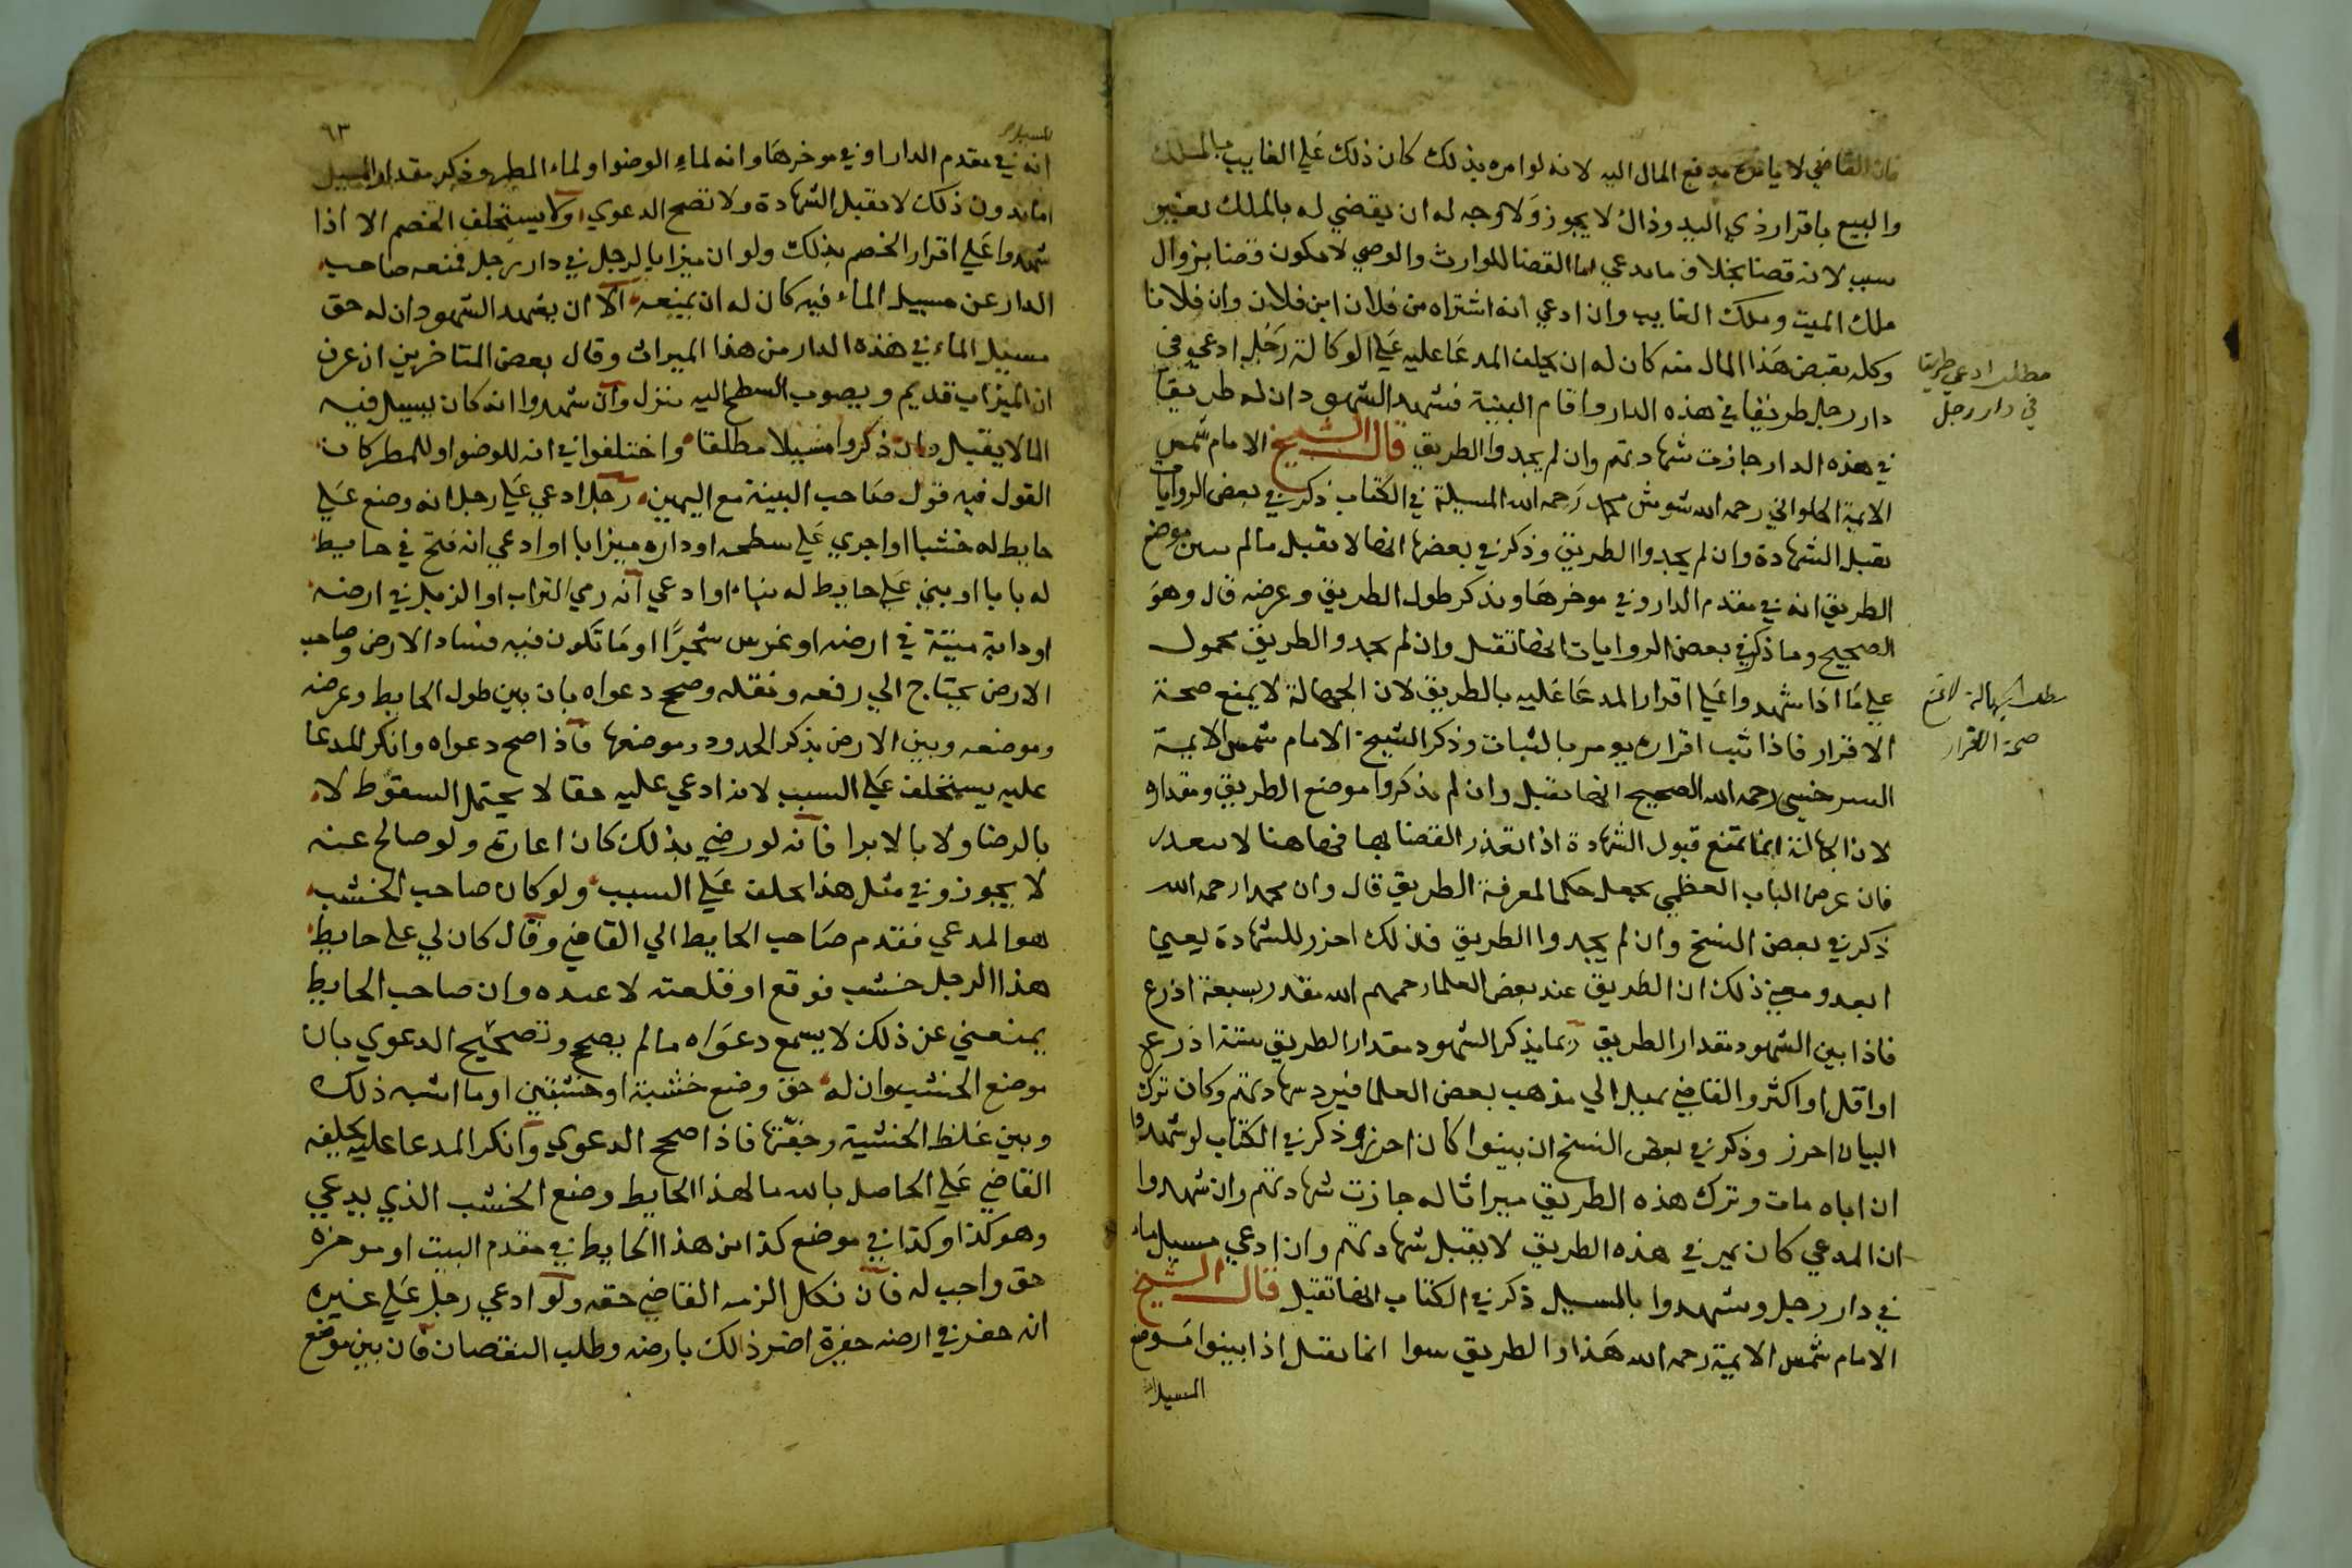 فان القاضي لا يامره بدفع المال اليه لانه لو امره بذلك كان ذلك علي الغايب بالملك
والبيع باقرار ذي اليد وذاك لا يجوز ولا وجه له ان يقضي له بالملك بغير
سبب لانه قضا بخلاف ما يدعي اما القضا للوارث والوصي لا يكون قضا بزوال
ملك الميت وملك الغايب وان ادعي انه اشتراه من فلان ابن فلان وان فلانا
وكله بقبض هذا المال منه كان له ان يحلف المدعا عليه علي الوكالة رجل ادعي في
دار رجل طريقا في هذه الدار واقام البينة فشهد الشهود ان له طريقا
في هذه الدار جازت شهادتهم وان لم يحدوا الطريق قال الشيخ الامام شمس
الايمة الحلواني رحمه الله شوش محمد رحمه الله المسيلة في الكتاب ذكر في بعض الروايات
تقبل الشهادة وان لم يحدوا الطريق وذكر في بعضها انها لا تقبل ما لم يبين موضع
الطريق انه في مقدم الدار وفي موخرها ويذكر طول الطريق وعرضه قال وهو
الصحيح وما ذكر في بعض الروايات انها تقبل وان لم يحدوا الطريق محمول
علي ما اذا شهدوا علي اقرار المدعا عليه بالطريق لان الجهالة لا يمنع صحة
الاقرار فاذا ثبت اقراره يومر بالثبات وذكر الشيخ الامام شمس الايمة
السرخسي رحمه الله الصحيح انها تقبل وان لم يذكروا موضع الطريق ومقداره
لان الجهالة انما تمنع قبول الشهادة اذا تعذر القضا بها فهاهنا لا يتعذر
فان عرض الباب العظمي يجعل حكما لمعرفة الطريق قال وان محمدا رحمه الله
ذكر في بعض النسخ وان لم يحدوا الطريق فذلك احزر للشهادة يعيي
ابعد ومعني ذلك ان الطريق عند بعض العلما رحمهم الله مقدر بسبعة اذرع
فاذا بين الشهود مقدار الطريق ربما يذكر الشهود مقدار الطريق ستة اذرع
او اقل او اكثر والقاضي يميل الي مذهب بعض العلما فيرد شهادتهم وكان ترك
البيان احرز وذكر في بعض النسخ ان بينوا كان احرز وذكر في الكتاب لو شهدوا
ان اباه مات وترك هذه الطريق ميراثا له جازت شهادتهم وان شهدوا
ان المدعي كان يمر في هذه الطريق لا يقبل شهادتهم وان ادعي مسيل ماء
في دار رجل وشهدوا بالمسيل ذكر في الكتاب انها تقبل قال الشيخ
الامام شمس الايمة رحمه الله هذا والطريق سوا انما تقبل اذا بينوا موضع
المسيل
مطلب ادعي طريقا
في دار رجل
مطلب الجهالة لا تمنع
صحة الاقرار
٩٣
المسيل
انه في مقدم الدار او في موخرها وانه لماء الوضوا ولماء المطر وذكر مقدار المسيل
اما بدون ذلك لا تقبل الشهادة ولا تصح الدعوي ولا يستحلف الخصم الا اذا
شهدوا علي اقرار الخصم بذلك ولو ان ميزابا لرجل في دار رجل فمنعه صاحب
الدار عن مسيل الماء فيه كان له ان يمنعه الا ان يشهد الشهود ان له حق
مسيل الماء في هذه الدار من هذا الميراث وقال بعض المتاخرين ان عرف
ان الميزاب قديم ويصوب السطح اليه منزل وان شهدوا انه كان يسيل فيه
الما لا يقبل وان ذكروا مسيلا مطلقا واختلفوا في انه للوضوا وللمطر كان
القول فيه قول صاحب البينة مع اليمين رجل ادعي علي رجل انه وضع علي
حايط له خشبا او اجري علي سطحه او داره ميزابا او ادعي انه فتح في حايط
له بابا او بني علي حايط له بناء او ادعي انه رمي التراب او الزبل في ارضه
او دابة ميتة في ارضه او غرس شجرا او ما تكون فيه فساد الارض وصاحب
الارض يحتاج الي رفعه ونقله وصح دعواه بان بين طول الحايط وعرضه
وموضعه وبين الارض بذكر الحدود وموضعها فاذا صح دعواه وانكر المدعا
عليه يستحلف علي السبب لانه ادعي عليه حقا لا يحتمل السقوط لا
بالرضا ولا بالابرا فانه لو رضي بذلك كان اعارة ولو صالح عنه
لا يجوز وفي مثل هذا يحلف علي السبب ولو كان صاحب الخشب
هو المدعي فقدم صاحب الحايط الي القاضي وقال كان لي علي حايط
هذا الرجل خشب فوقع او قلعته لاعيده وان صاحب الحايط
يمنعني عن ذلك لا يسمع دعواه ما لم يصح وتصحيح الدعوي بان
موضع الخشب وان له حق وضع خشبة او خشبتين او ما اشبه ذلك
وبين غلظ الخشبة وخفتها فاذا صحح الدعوي وانكر المدعا عليه يحلفه
القاضي علي الحاصل بالله ما لهذا الحايط وضع الخشب الذي يدعي
وهو كذا وكذا في موضع كذا من هذا الحايط في مقدم البيت او موخره
حق واجب له فان نكل الزمه القاضي حقه ولو ادعي رجل علي غيره
انه حفر في ارضه حفرة اضر ذالك بارضه وطلب النقصان فان بين موضع